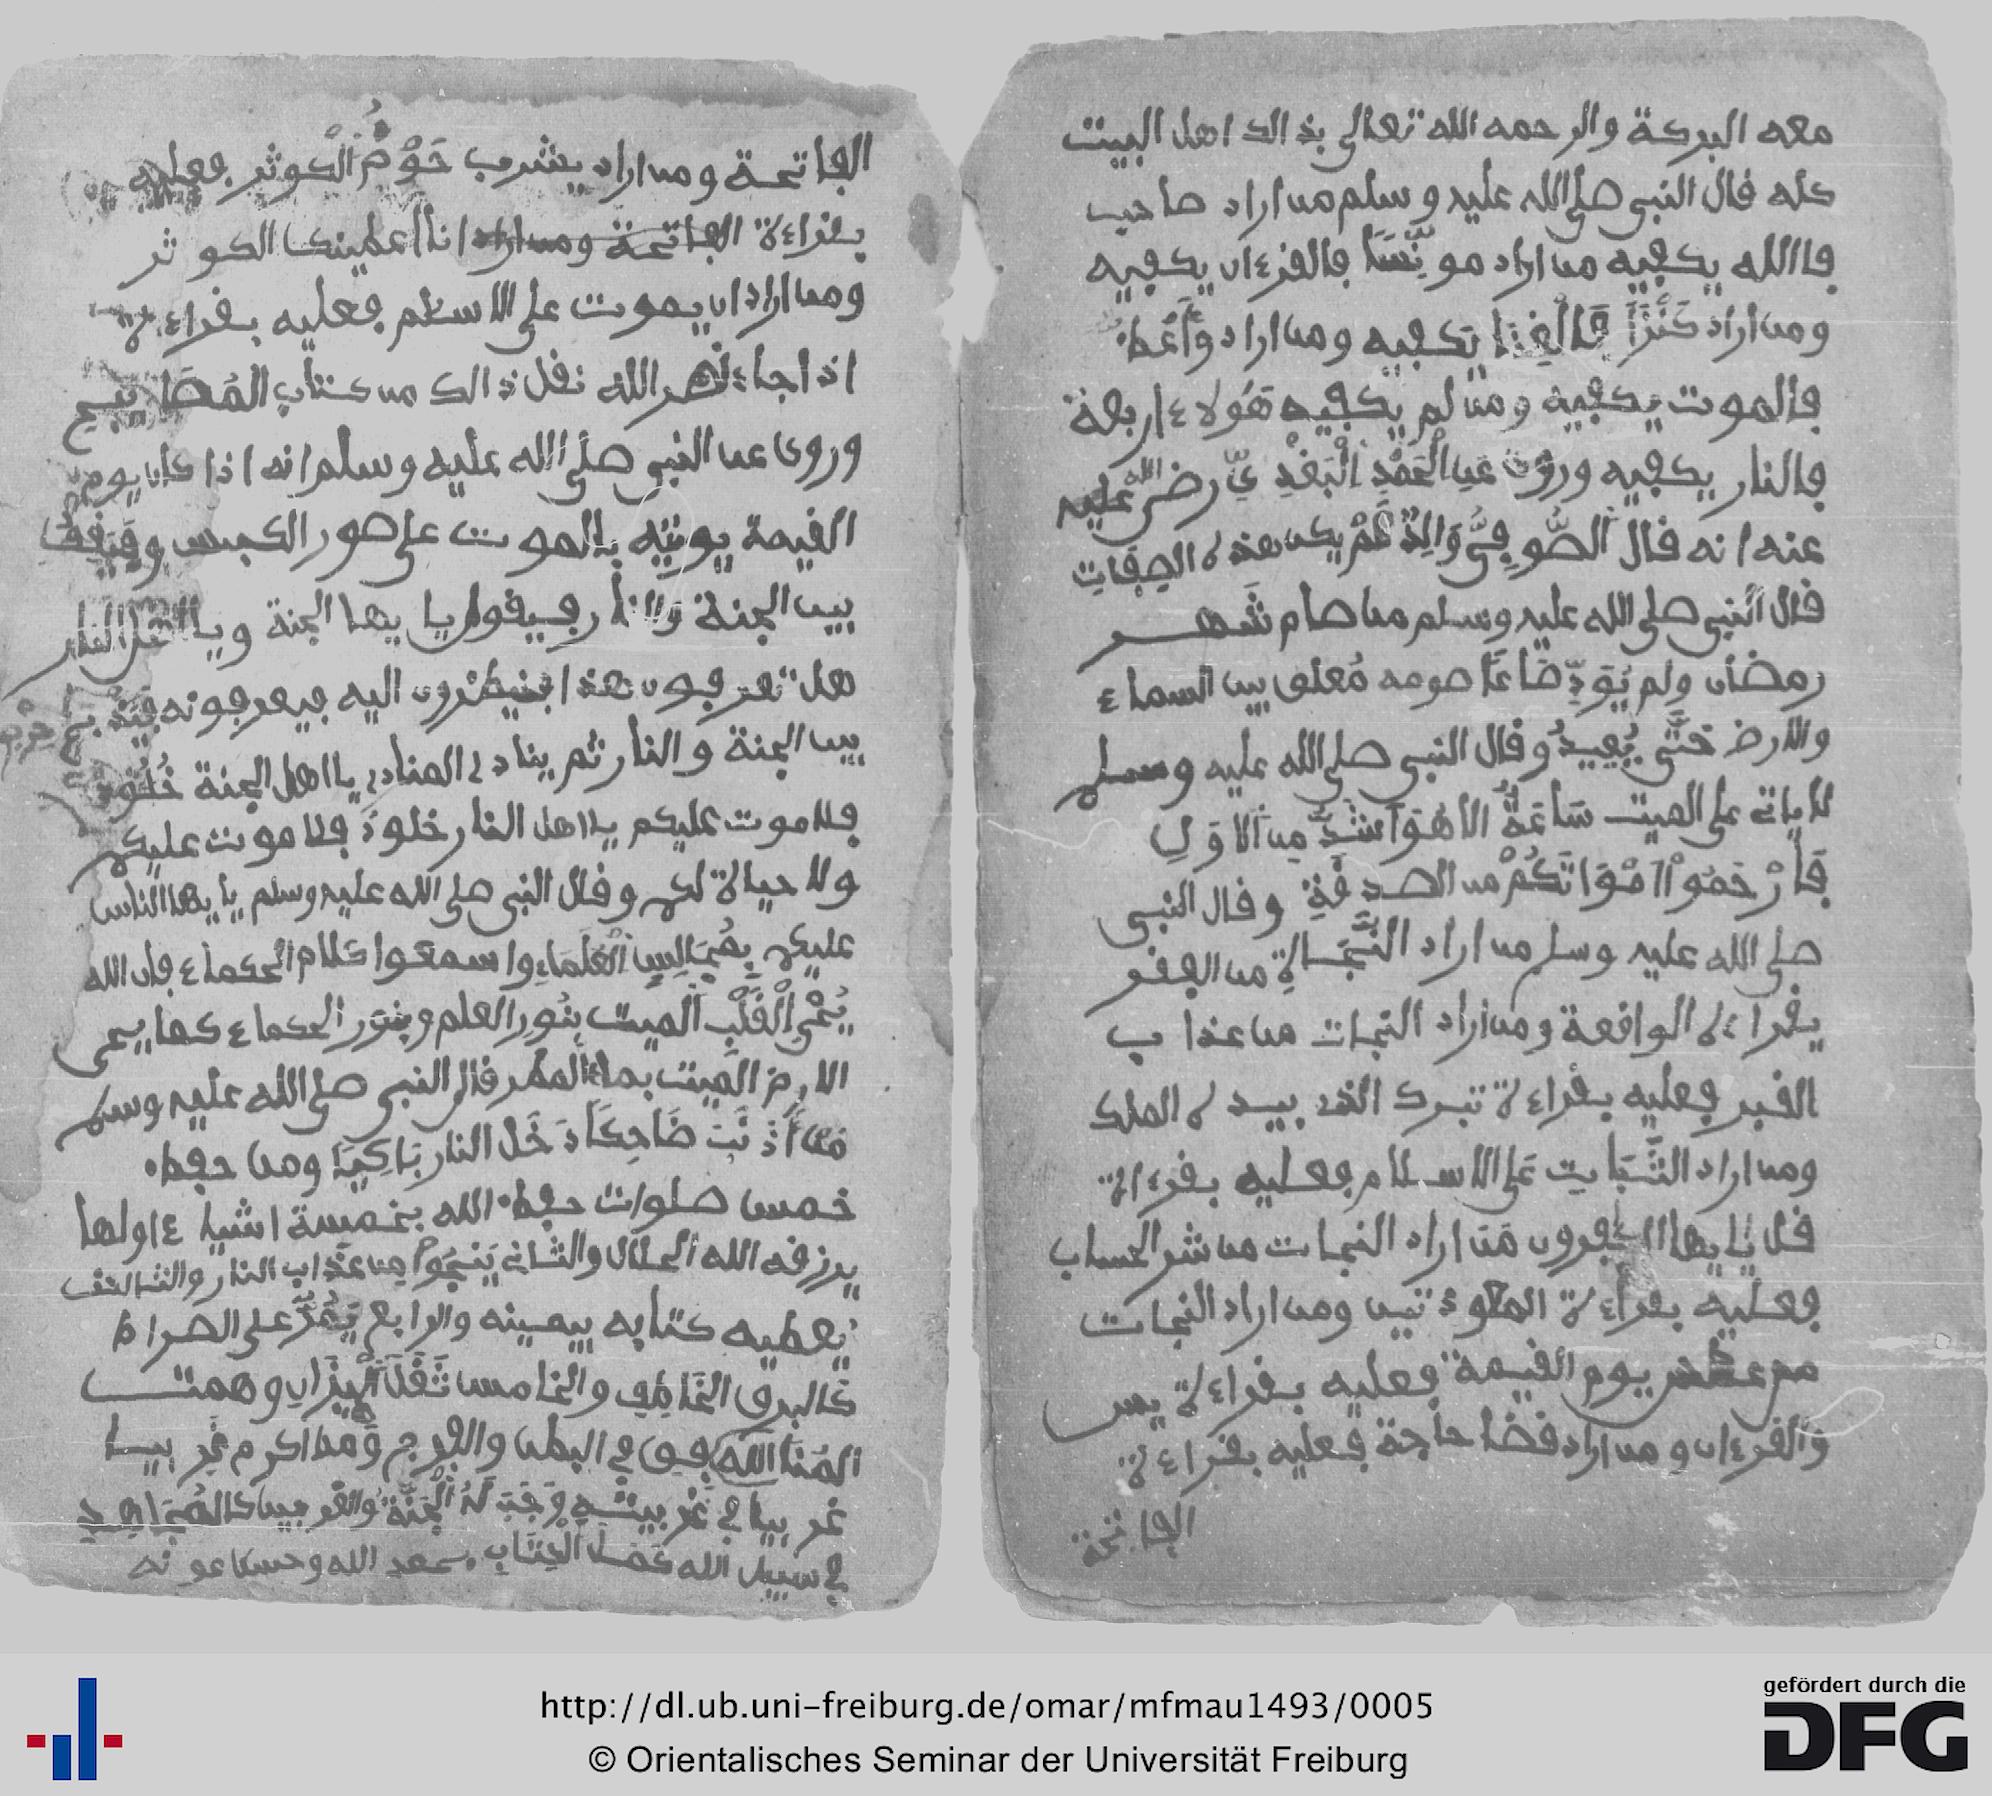 معه البركة والرحمه الله تعالى بذالك اهل البيت
كله قال النبي صلى الله عليه وسلم من اراد صاحب
فاالله يكفيه من اراد مونسا فالقرءان يكفيه
ومن اراد كنزا يكفيه ومن اراد واعظ
فالموت يكفيه ومن لم يكفيه هولاء اربعة
فالنار يكفيه وروى عن رضي الله عليه
عنه انه قال الصوفي لم يكن هذه الصفات
قال النبي صلى الله عليه وسلم من صام شهر
رمضان ولم يؤد صاعا صومه معلق بين السماء
والارض حتى وقال النبي صلى الله عليه وسلم
لا ياتي على الميت ساعة الا هو اشد من الاول
فارحموا امواتكم من الصدقة وقال النبي
صلى الله عليه وسلم من اراد النجالة من الفقر
يقراءة الواقعة ومن اراد النجات من عذاب
القبر فعليه بقراءة تبرك الذي بيده الملك
ومن اراد الثبات على الاسلام فعليه بقرءاة
قل يا يها الكفرون من اراد النجات من شر الحساب
فعليه بقراءة المعوذتين ومن اراد النجات
من يوم القيمة فعليه بقراءة يس
والقرءان ومن اراد قضا حاجة فعليه بقراءة
الفاتحة
الفاتحة ومن اراد يشرب حوض الكوثر فعليه
بقراءة الفاتحة ومن اراد انا اعطينك الكوثر
ومن اراد ان يموت على الاسلم فعليه بقراءة
اذا جاء نصر الله نقل ذالك من كتاب المصابيح
وروى عن النبي صلى الله عليه وسلم انه اذا كان يوم
القيمة يوتيه بالموت على صور الكبس وقيقف
بين الجنة والنار فيقول يا يها الجنة ويا النار
هل تعرفون هذا فينظرون اليه فيعرفونه فيذبح
بين الجنة والنار ثم ينادي المنادي يا اهل الجنة خلود
فلا موت عليكم يا اهل النار خلود فلا موت عليكم
ولا حياة لكم وقال النبي صلى الله عليه وسلم يا يها الناس
عليكم بمجالس العلماء واسمعوا كلام الحكماء فان الله
يحي القلب الميت بنور العلم وبنور الحكماء كما يحي
الارض الميت بماء المطر قال النبي صلى الله عليه وسلم
من اذنب ضاحكا دخل النار باكيا ومن حفظ
خمس صلوات حفظ الله بخمسة اشياء اولها
يرزقه الله الحلال والثاني ينجوا من عذاب النار والثالث
يعطيه كتابه بيمينه والرابع يمر على الصراط
كالبرق الخاطف والخامس ثقل الميزان وهمت
في البطن والفرج ومن اكرم غريبا
غريبا في غربيته وجبت له الجنة كالمجاهد
في سبيل الله كمل الكتاب بحمد الله وحسن عونه
http://dl.ub.uni-freiburg.de/omar/mfmau1493/0005
© Orientalisches Seminar der Universität Freiburg
gefördert durch die
DFG